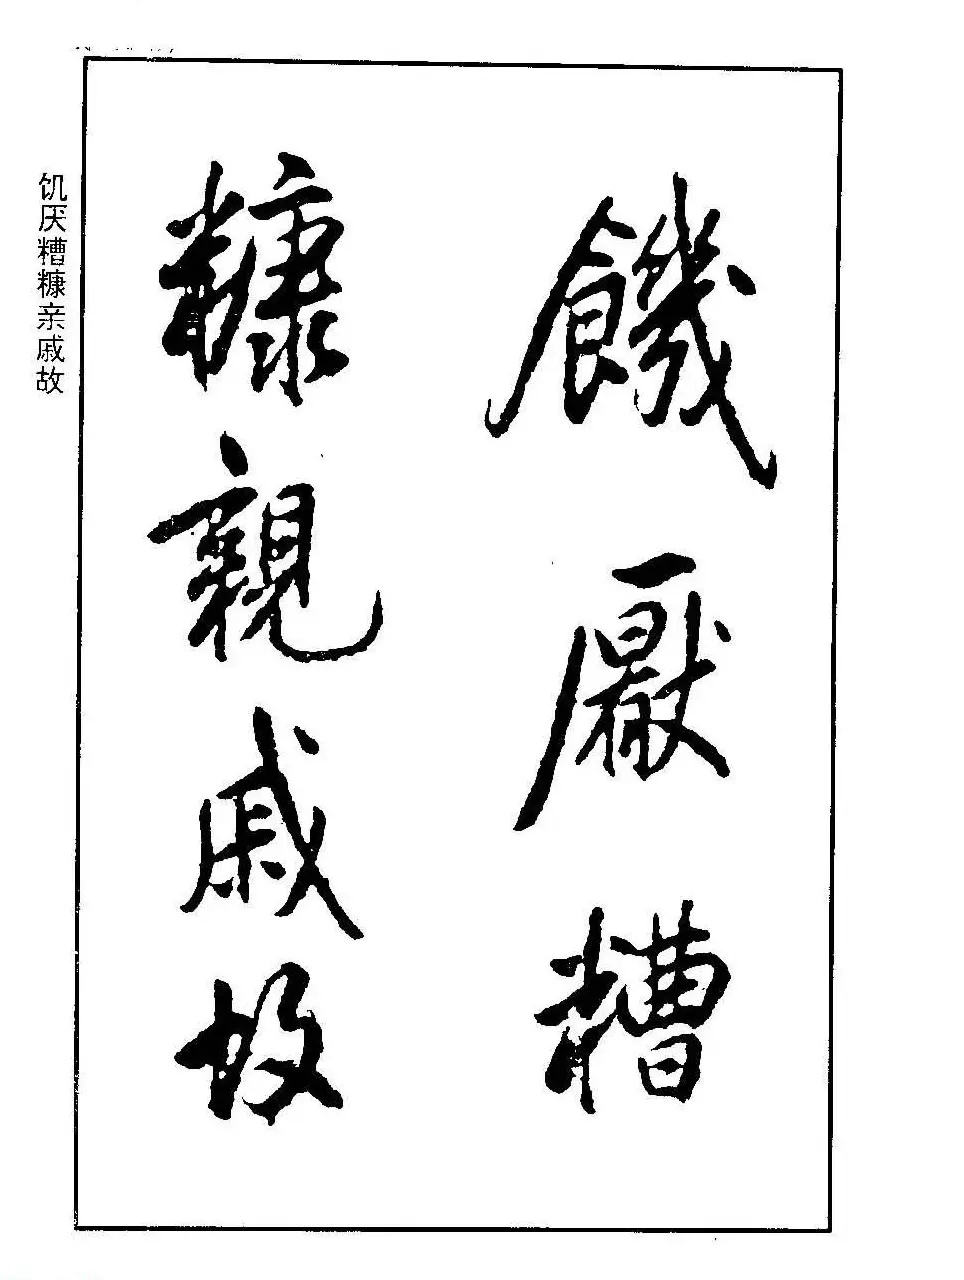 饑厭糟
糠親戚故
饥厌糟糠亲戚故